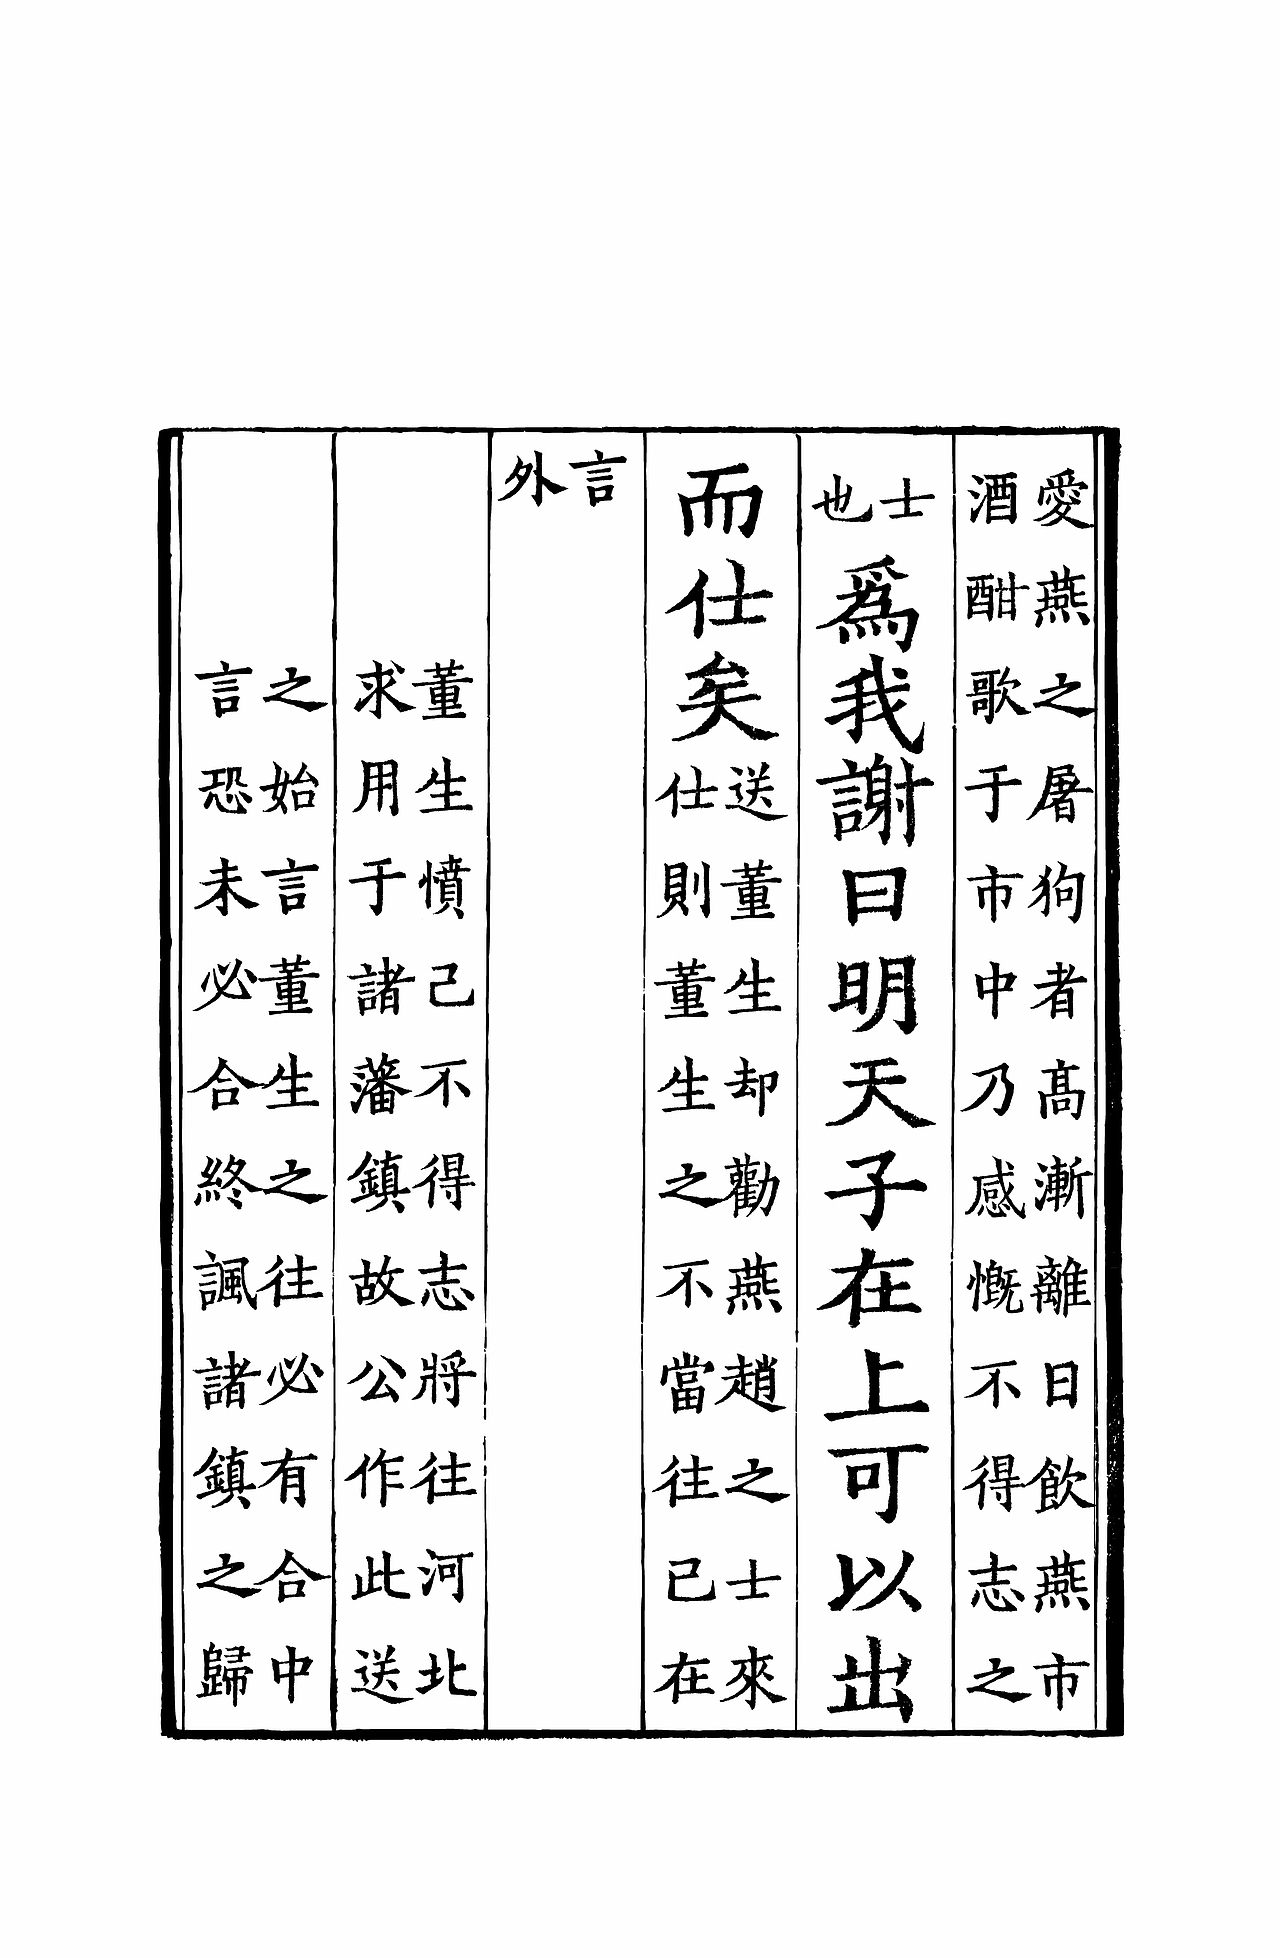 愛燕之屠狗者髙漸離日飲燕市
酒酣歌于市中乃感慨不得志之
士
也
爲我謝曰明天子在上可以出
而仕矣
送董生却勸燕趙之士來
仕則董生之不當往已在
言
外
董生憤己不得志將往河北
求用于諸藩鎮故公作此送
之始言董生之往必有合中
言恐未必合終諷諸鎮之歸